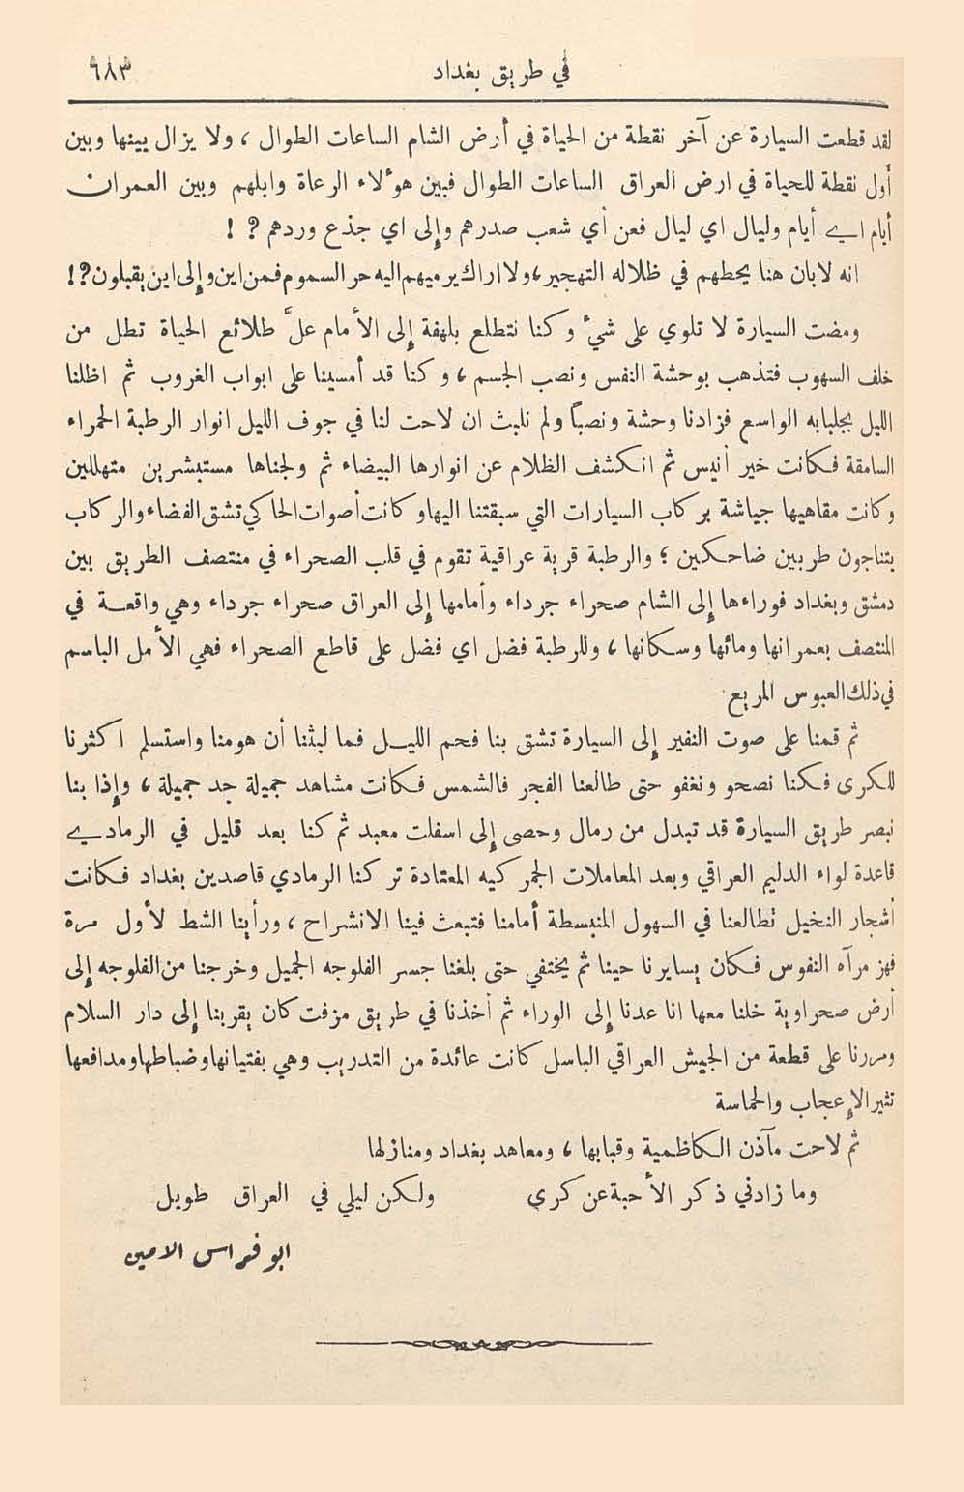 في طريق بغداد ٦٨٣
لقد قطعت السيارة عن آخر نقطة من الحياة في أرض الشام الساعات الطوال ، ولا يزال بينها وبين
أول نقطة للحياة في ارض العراق الساعات الطوال فبين هؤلاء الرعاة وابلهم وبين العمران
أيام اي أيام وليال اي ليال فعن أي شعب صدرهم وإلى اي جذع وردهم ? !
انه لابان هنا يحطهم في ظلاله التهجير ، ولا اراك يرميهم اليه حر السموم فمن اين وإلى اين يقبلون ? !
ومضت السيارة لا تلوي على شيء وكنا نتطلع بلهفة إلى الأمام علَّ طلائع الحياة تطل من
خلف السهوب فتذهب بوحشة النفس ونصب الجسم ، وكنا قد أمسينا على ابواب الغروب ثم اظلنا
الليل بجلبابه الواسع فزادنا وحشة ونصباً ولم نلبث ان لاحت لنا في جوف الليل انوار الرطبة الحمراء
السامقة فكانت خير أنيس ثم انكشف الظلام عن انوارها البيضاء ثم ولجناها مستبشرين متهللين
وكانت مقاهيها جياشة بركاب السيارات التي سبقتنا اليها وكانت أصوات الحاكي تشق الفضاء والركاب
يتناجون طربين ضاحكين ؛ والرطبة قرية عراقية تقوم في قلب الصحراء في منتصف الطريق بين
دمشق وبغداد فوراءها إلى الشام صحراء جرداء وأمامها إلى العراق صحراء جرداء وهي واقعة في
المنتصف بعمرانها ومائها وسكانها ، وللرطبة فضل اي فضل على قاطع الصحراء فهي الأمل الباسم
في ذلك العبوس المريع
ثم قمنا على صوت النفير إلى السيارة تشق بنا فحم الليل فما لبثنا أن هومنا واستسلم اكثرنا
للكرى فكنا نصحو ونغفو حتى طالعنا الفجر فالشمس فكانت مشاهد جميلة جد جميلة ، وإذا بنا
نبصر طريق السيارة قد تبدل من رمال وحصى إلى اسفلت معبد ثم كنا بعد قليل في الرمادي
قاعدة لواء الدليم العراقي وبعد المعاملات الجمركيه المعتادة تركنا الرمادي قاصدين بغداد فكانت
أشجار النخيل تطالعنا في السهول المنبسطة أمامنا فتبعث فينا الانشراح ، ورأينا الشط لأول مرة
فهز مرآه النفوس فكان يسايرنا حينا ثم يختفي حتى بلغنا جسر الفلوجه الجميل وخرجنا من الفلوجه إلى
أرض صحراوية خلنا معها انا عدنا إلى الوراء ثم أخذنا في طريق مزفت كان يقربنا إلى دار السلام
ومررنا على قطعة من الجيش العراقي الباسل كانت عائدة من التدريب وهي بفتيانها وضباطها ومدافعها
تثير الإعجاب والحماسة
ثم لاحت مآذن الكاظمية وقبابها ، ومعاهد بغداد ومنازلها
وما زادني ذكر الأحبة عن كرى ولكن ليلي في العراق طويل
ابو فراس الامين